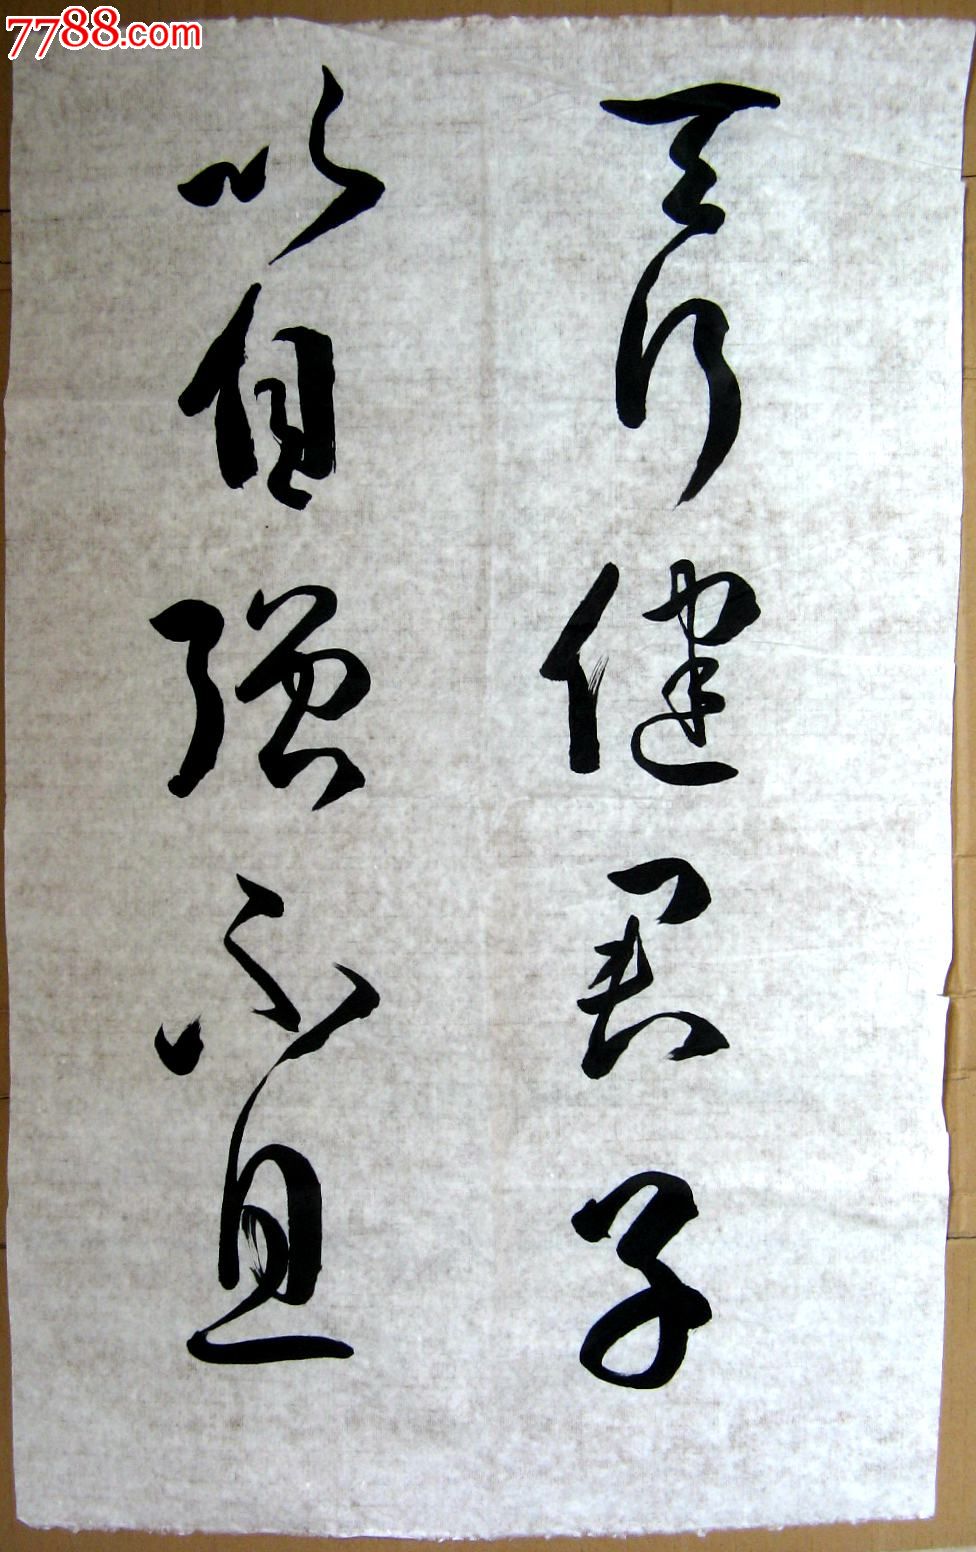 7788.com
天行健君子
以自强不息